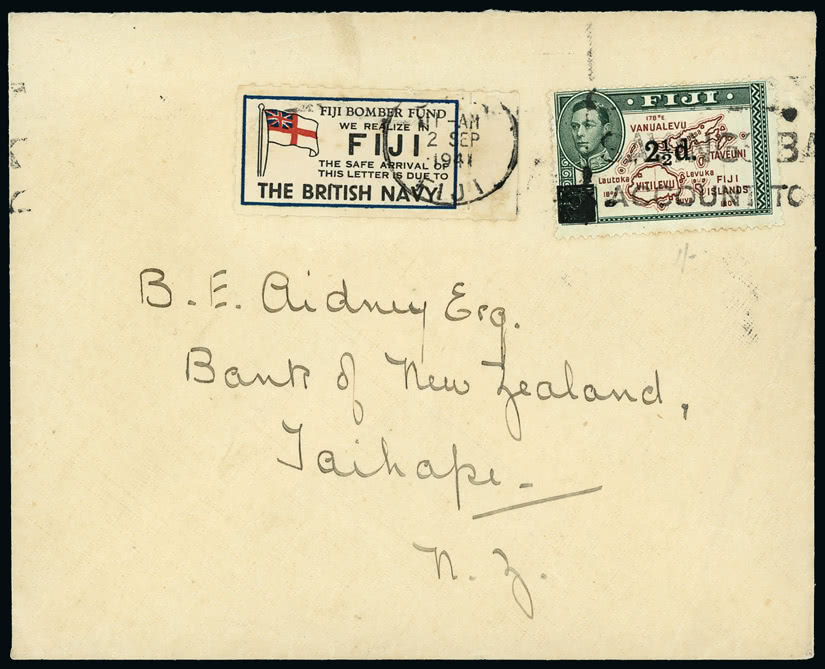 FIJI BOMBER FUND
WE REALIZE IN
FIJI
THE SAFE ARRIVAL OF
THIS LETTER IS DUE TO
THE BRITISH NAVY
-AM
2 SEP
1941
FIJI
FIJI
178°E
VANUALEVU
2½d.
TAVEUNI
Lautoka
Levuka
VITILEVU
FIJI
ISLANDS
SUVA
BA
ACCOUNT TO
1/-
B. E. Aidney Esq.
Bank of New Zealand,
Taihape -
N. Z.